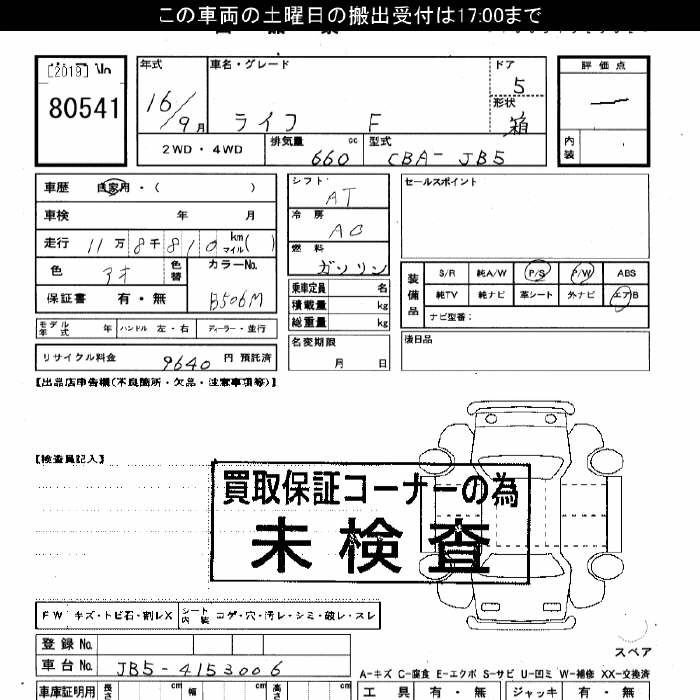 この車両の土曜日の搬出受付は17:00まで
[2019] No
80541
年式 車名・グレード ドア 評価点
16/9月 ライフ F 5
形状
箱
2WD・4WD 排気量 660 cc 型式 CBA-JB5 内装
車歴 自家用・( )
車検 年 月
走行 11万8千810 km マイル( )
色 アオ 色替 カラーNo.
保証書 有・無 B506M
モデル年式 年 ハンドル 左・右 ディーラー・並行
リサイクル料金 9640 円 預託済
シフト
AT
冷房
AC
燃料
ガソリン
乗車定員 名
積載量 kg
総重量 kg
名変期限
月 日
セールスポイント
装備品 S/R 純A/W P/S P/W ABS
純TV 純ナビ 革シート 外ナビ エアB
ナビ型番:
後日品
【出品店申告欄(不良箇所・欠品・注意事項等)】
【検査員記入】
買取保証コーナーの為
未検査
FW キズ・トビ石・割レX シート内装 コゲ・穴・汚レ・シミ・破レ・スレ
登録No.
車台No. JB5-4153006
スペア
A-キズ C-腐食 E-エクボ S-サビ U-凹ミ W-補修 XX-交換済
車庫証明用 長さ cm 幅 cm 高さ cm
工具 有・無 ジャッキ 有・無